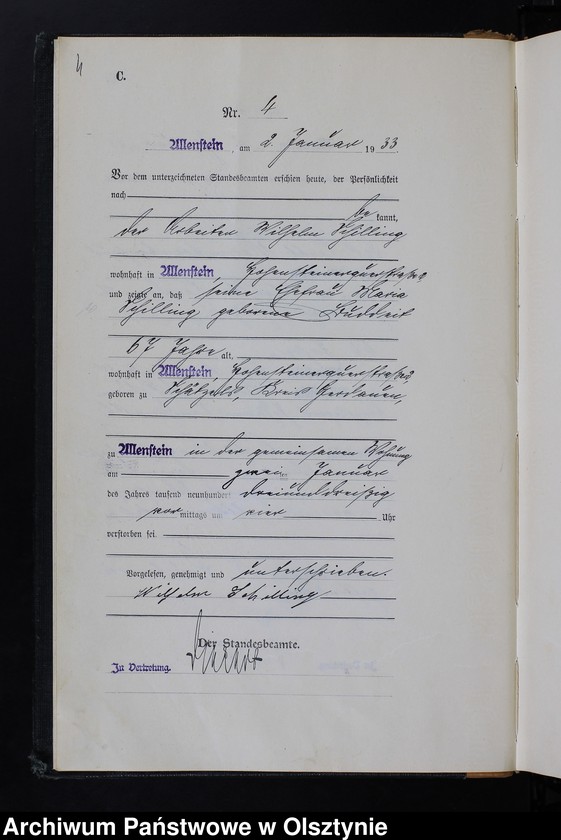 4
C.
Nr. 4
Allenstein, am 2. Januar 1933.
Vor dem unterzeichneten Standesbeamten erschien heute, der Persönlichkeit
nach
be kannt,
der Arbeiter Wilhelm Schilling
wohnhaft in Allenstein, Hohensteinerquerstraße 2
und zeigte an, daß seine Ehefrau Maria
Schilling geborene
67 Jahre alt,
wohnhaft in Allenstein, Hohensteinerquerstraße 2,
geboren zu Kreis Gerdauen,
zu Allenstein in der gemeinsamen Wohnung
am zweiten Januar
des Jahres tausend neunhundert dreiunddreißig
vor mittags um vier Uhr
verstorben sei.
Vorgelesen, genehmigt und unterschrieben.
Wilhelm Schilling
Der Standesbeamte.
In Vertretung.
Archiwum Państwowe w Olsztynie